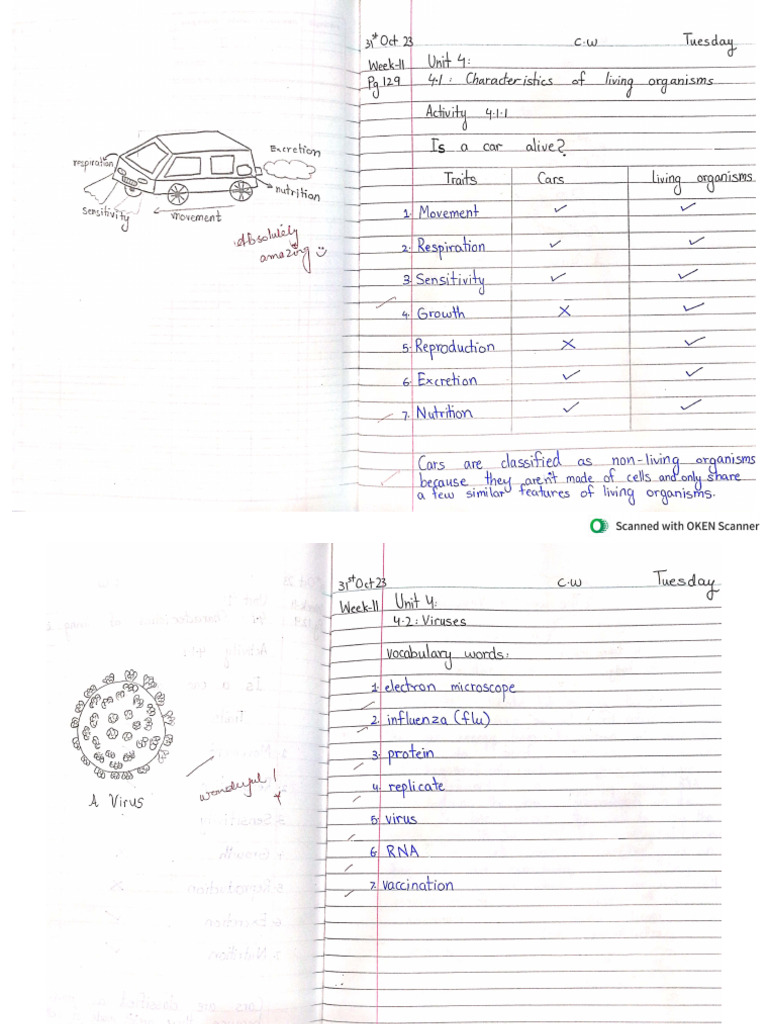 31st Oct 23 C.W Tuesday
Week-11 Unit 4:
Pg 129 4.1: Characteristics of living organisms
Activity 4.1.1
Is a car alive?
Traits Cars living organisms
1. Movement ✓ ✓
2. Respiration ✓ ✓
3. Sensitivity ✓ ✓
4. Growth ✗ ✓
5. Reproduction ✗ ✓
6. Excretion ✓ ✓
7. Nutrition ✓ ✓
Cars are classified as non-living organisms
because they aren't made of cells and only share
a few similar features of living organisms.
respiration
Excretion
nutrition
sensitivity
movement
Absolutely
amazing
Scanned with OKEN Scanner
31st Oct 23 C.W Tuesday
Week-11 Unit 4:
4.2: Viruses
Vocabulary words:
1. electron microscope
2. influenza (flu)
3. protein
4. replicate
5. virus
6. RNA
7. vaccination
A Virus
wonderful!